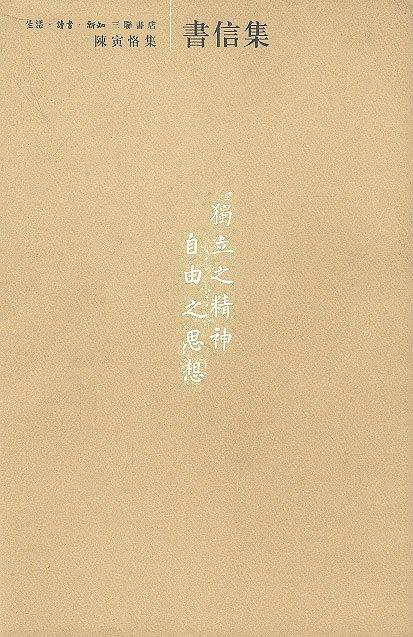 生活·讀書·新知 三聯書店
陳寅恪集
書信集
獨立之精神
自由之思想